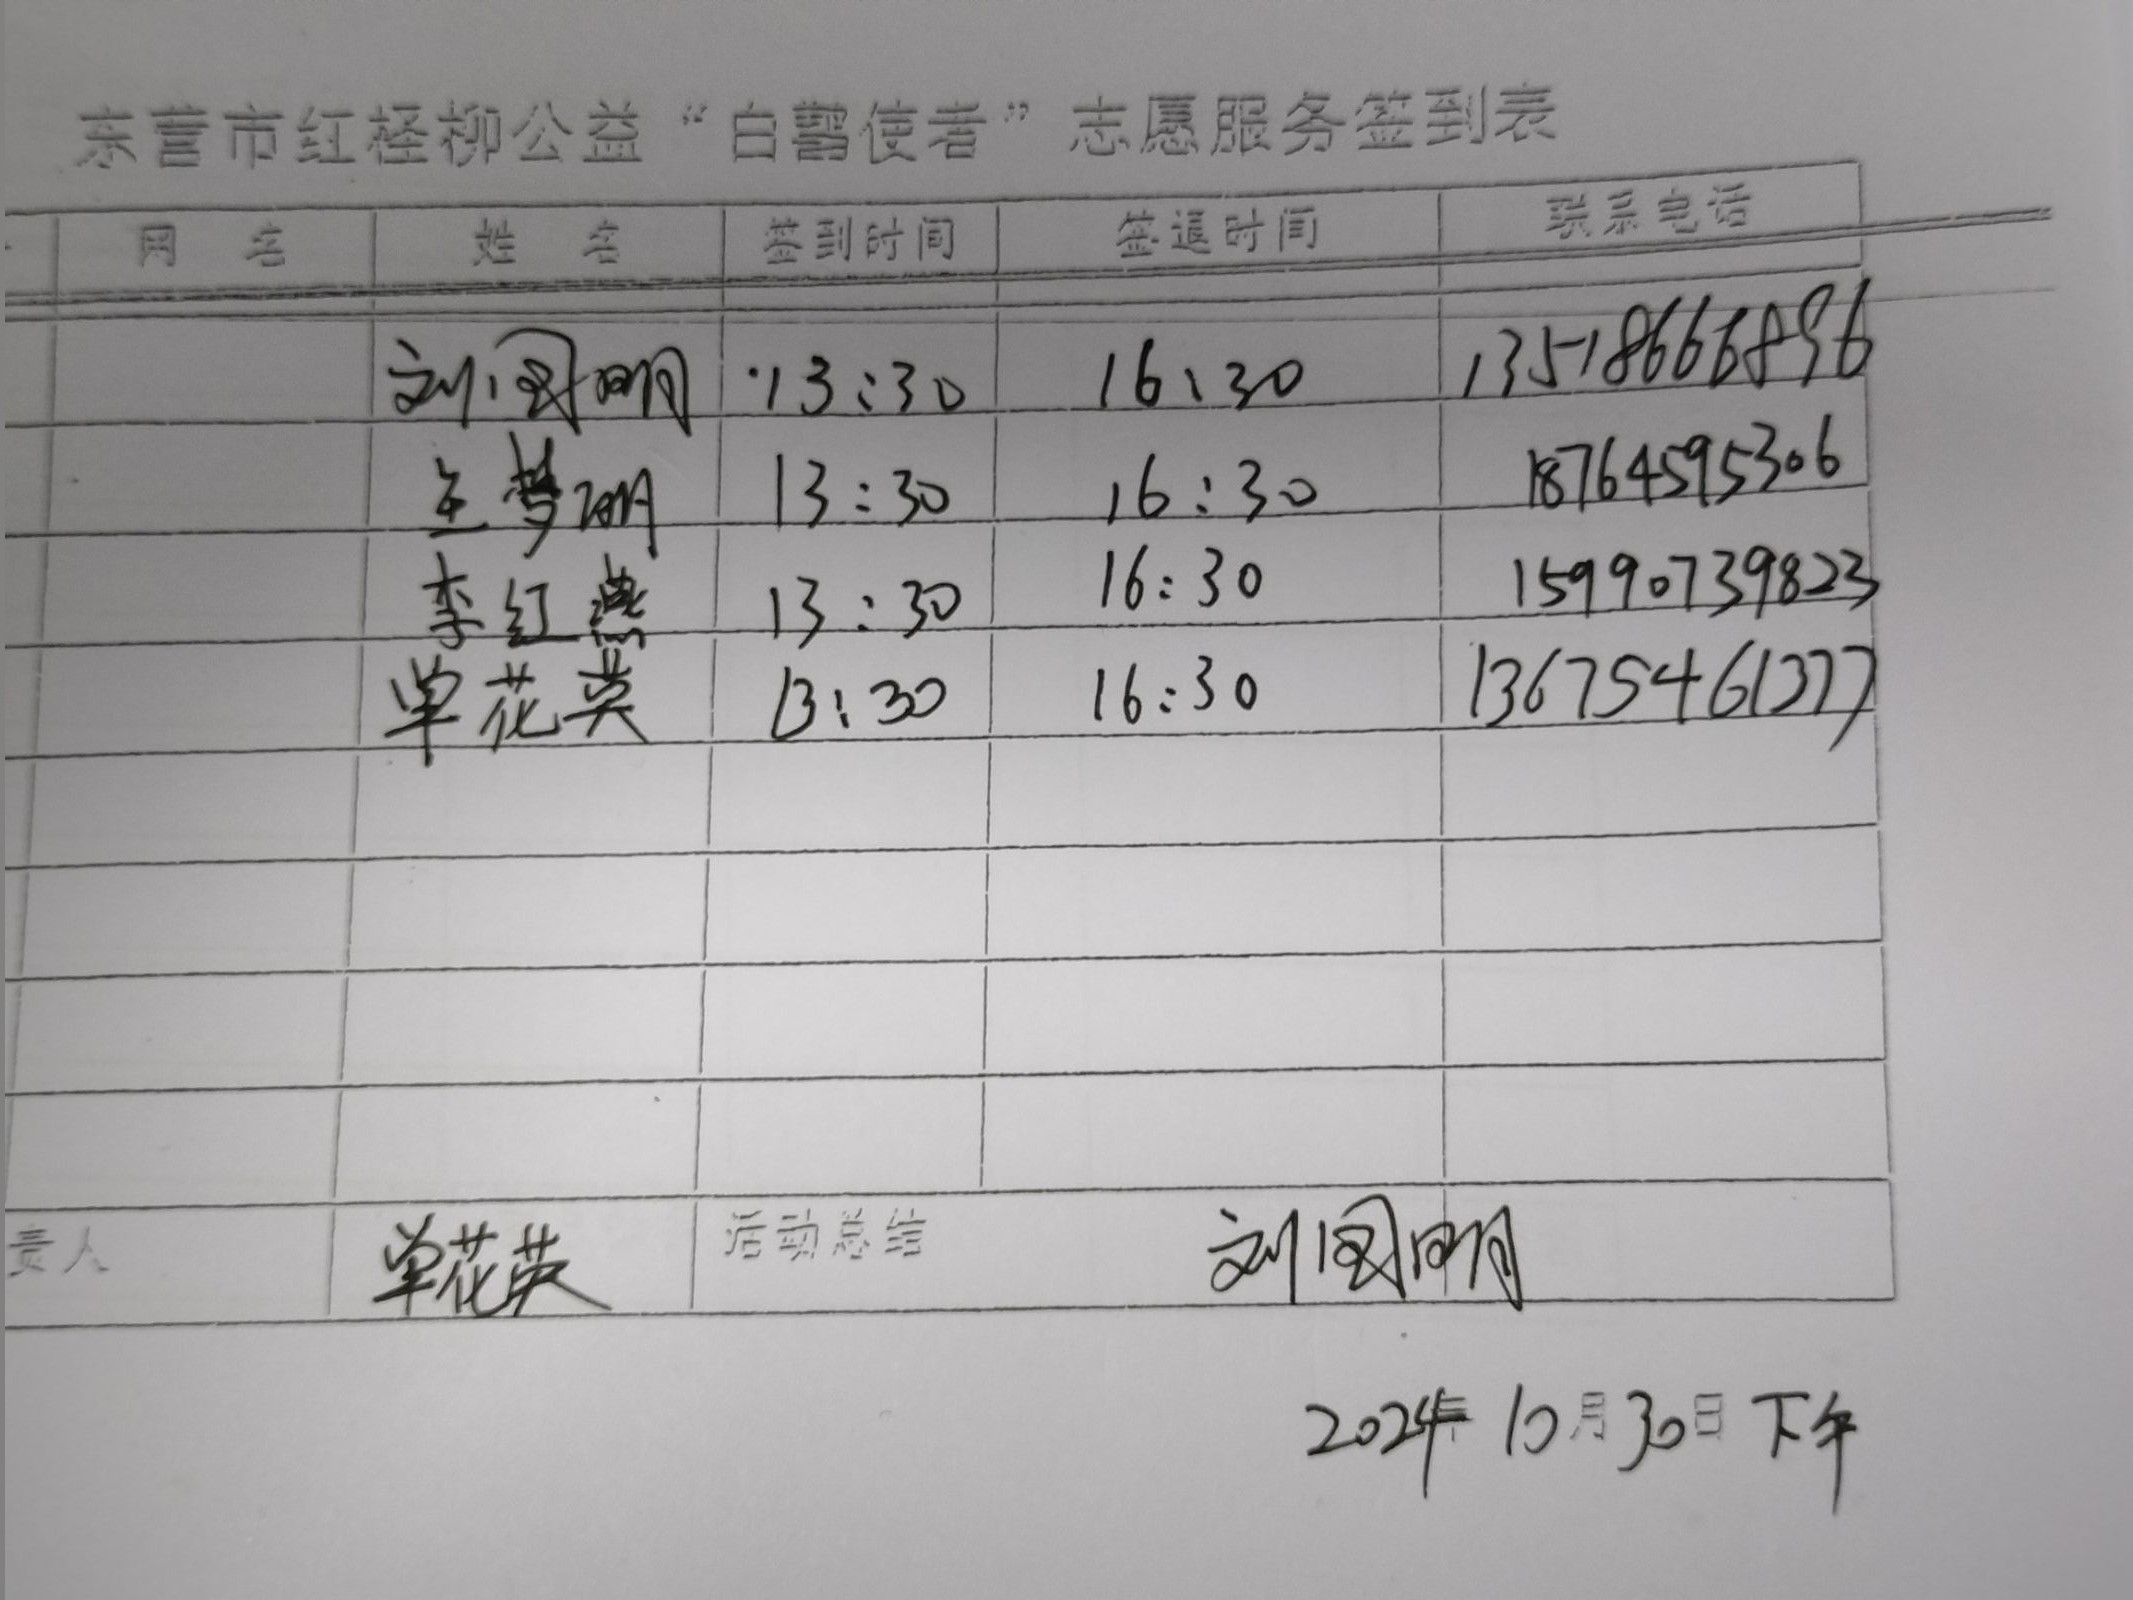 东营市红柽柳公益“白鹳使者”志愿服务签到表
网 名 姓 名 签到时间 签退时间 联系电话
刘国明 13:30 16:30 13518666896
王梦珊 13:30 16:30 18764595306
李红燕 13:30 16:30 15990739823
单花英 13:30 16:30 13675461377
责人 单花英 活动总结 刘国明
2024年 10月30日下午